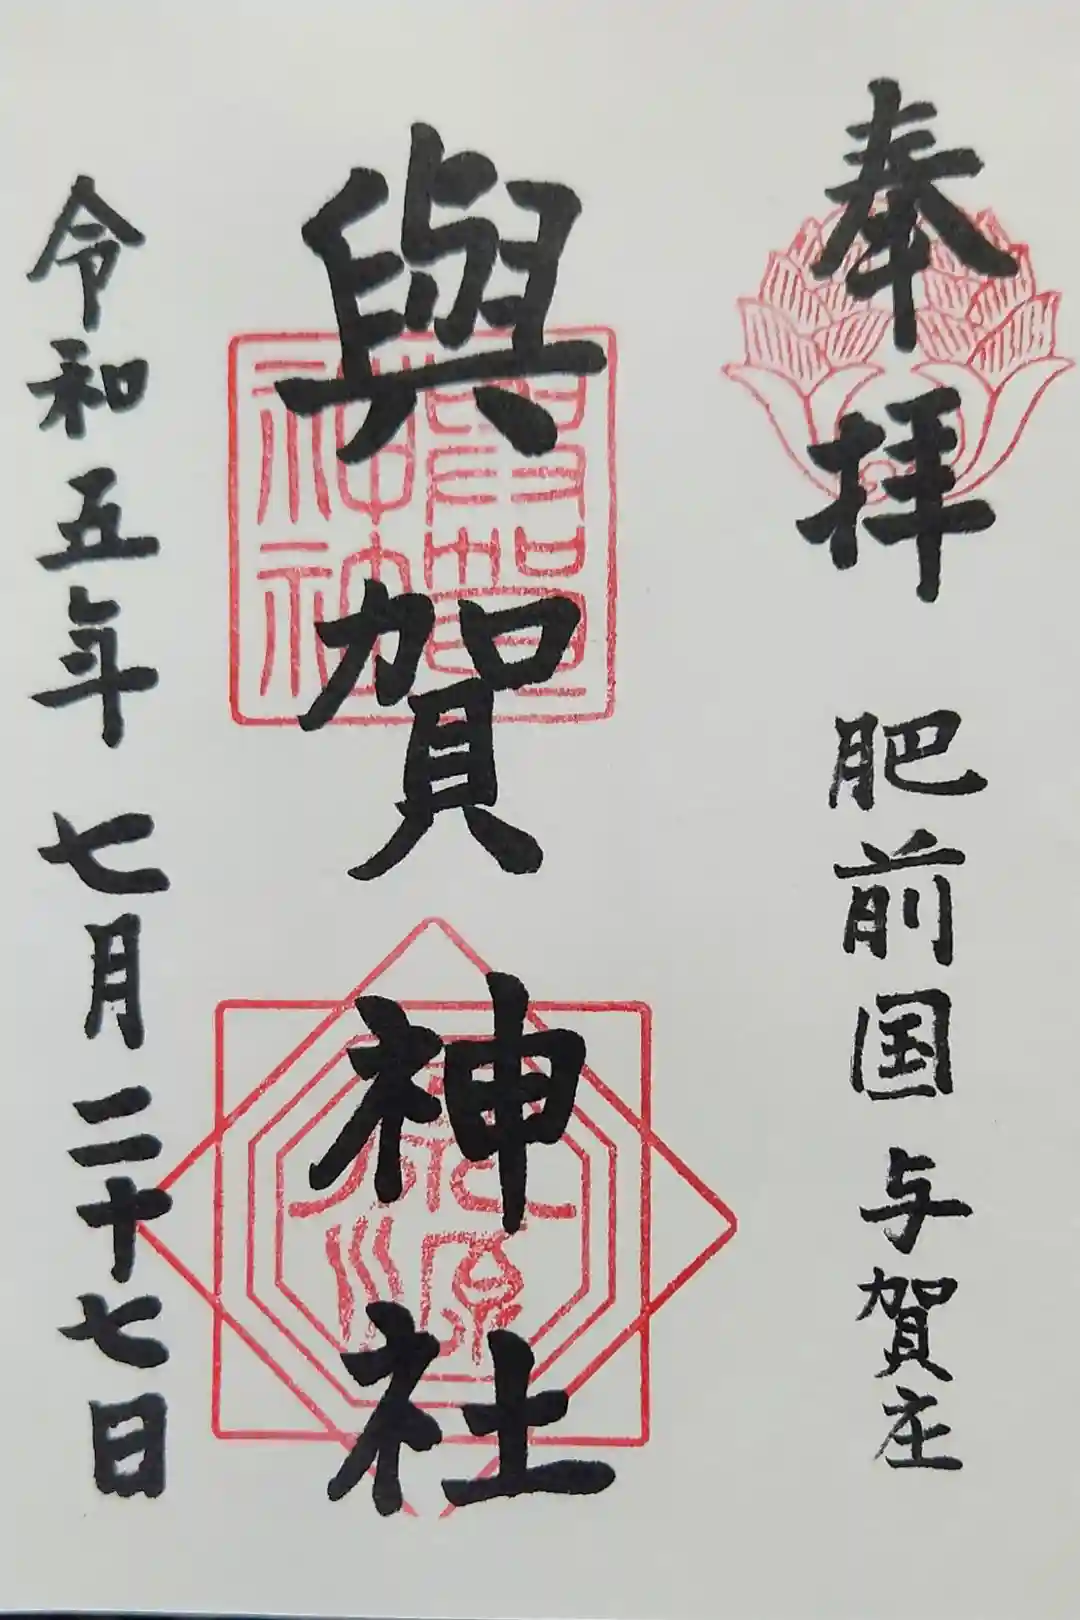 奉拝 肥前国 与賀庄
與賀神社
與賀神社
令和五年 七月二十七日